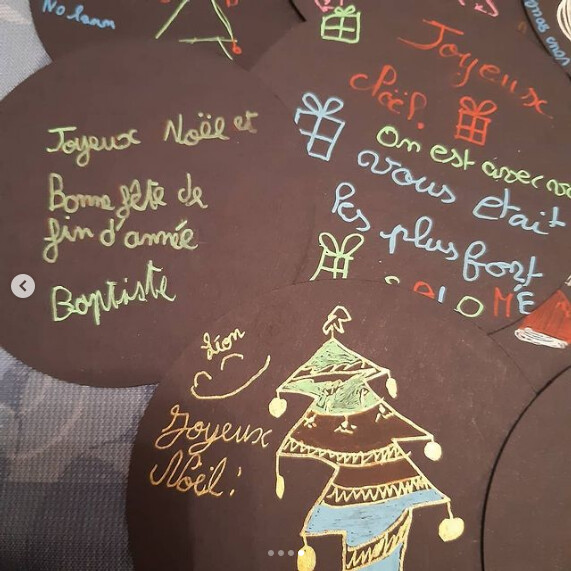 Nolann
Joyeux Noël et
Bonne fête de
fin d'année
Baptiste
Joyeux
Noël!
On est avec vo
vous etait
les plus fort
LOMÉ
Lion
Joyeux
Noël!